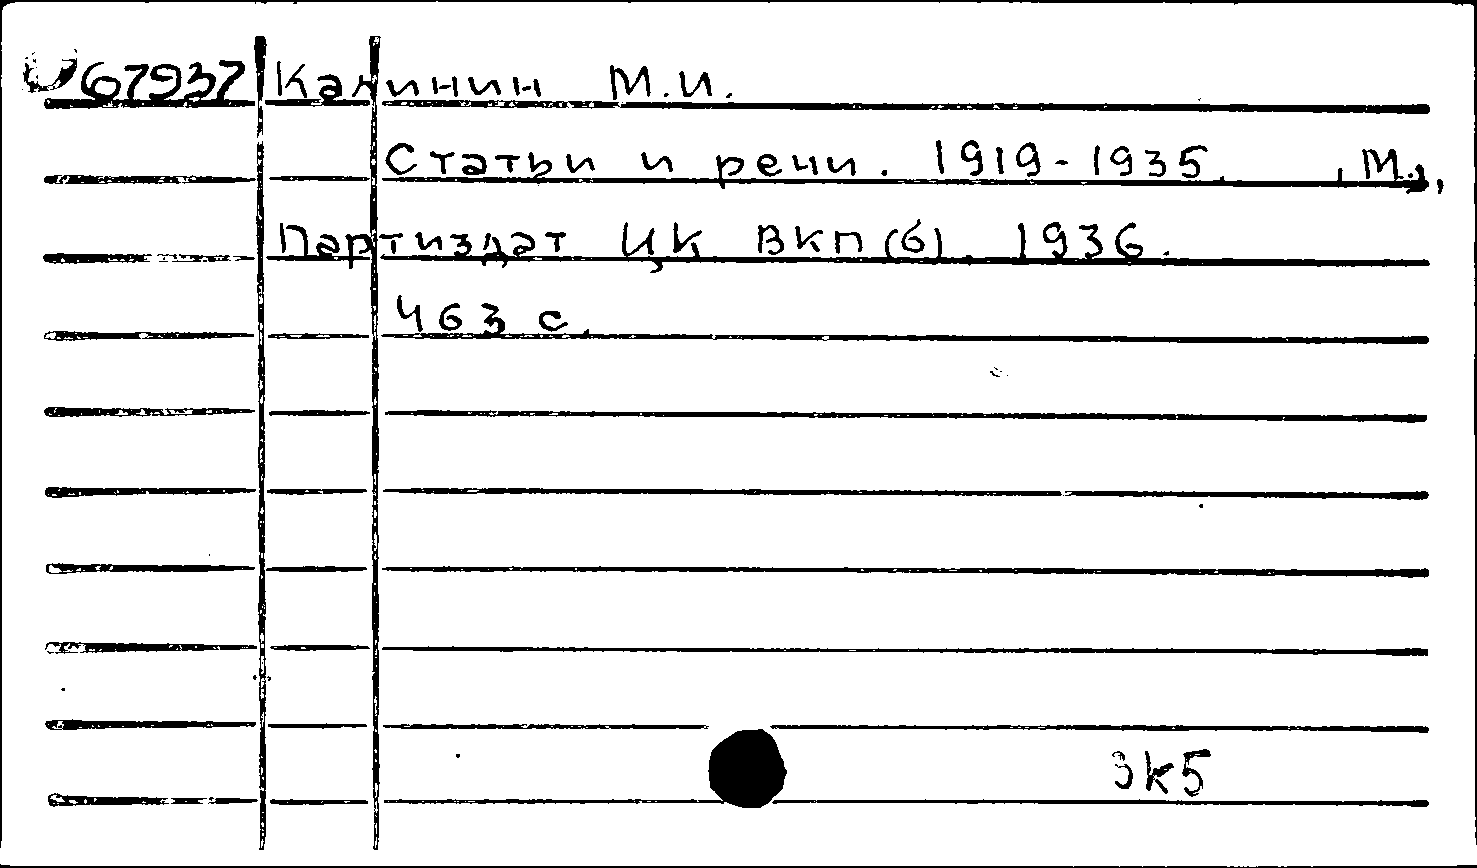 67937 Калинин М.И.
Статьи и речи. 1919-1935. , М.,
Партиздат ЦК ВКП(б). 1936.
463 с.
3к5